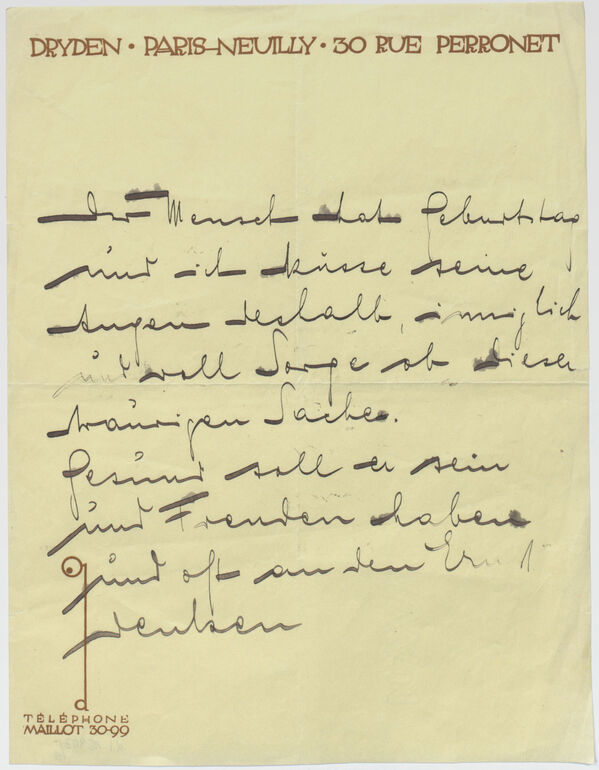 DRYDEN • PARIS-NEUILLY • 30 RUE PERRONET
Der Mensch hat Geburtstag
und ich küsse seine
Augen deshalb, inniglich
und voll Sorge ob dieser
traurigen Sache.
Gesund soll er sein
und Freuden haben
und oft an den Ernst
denken
d
TÉLÉPHONE
MAILLOT 30-99